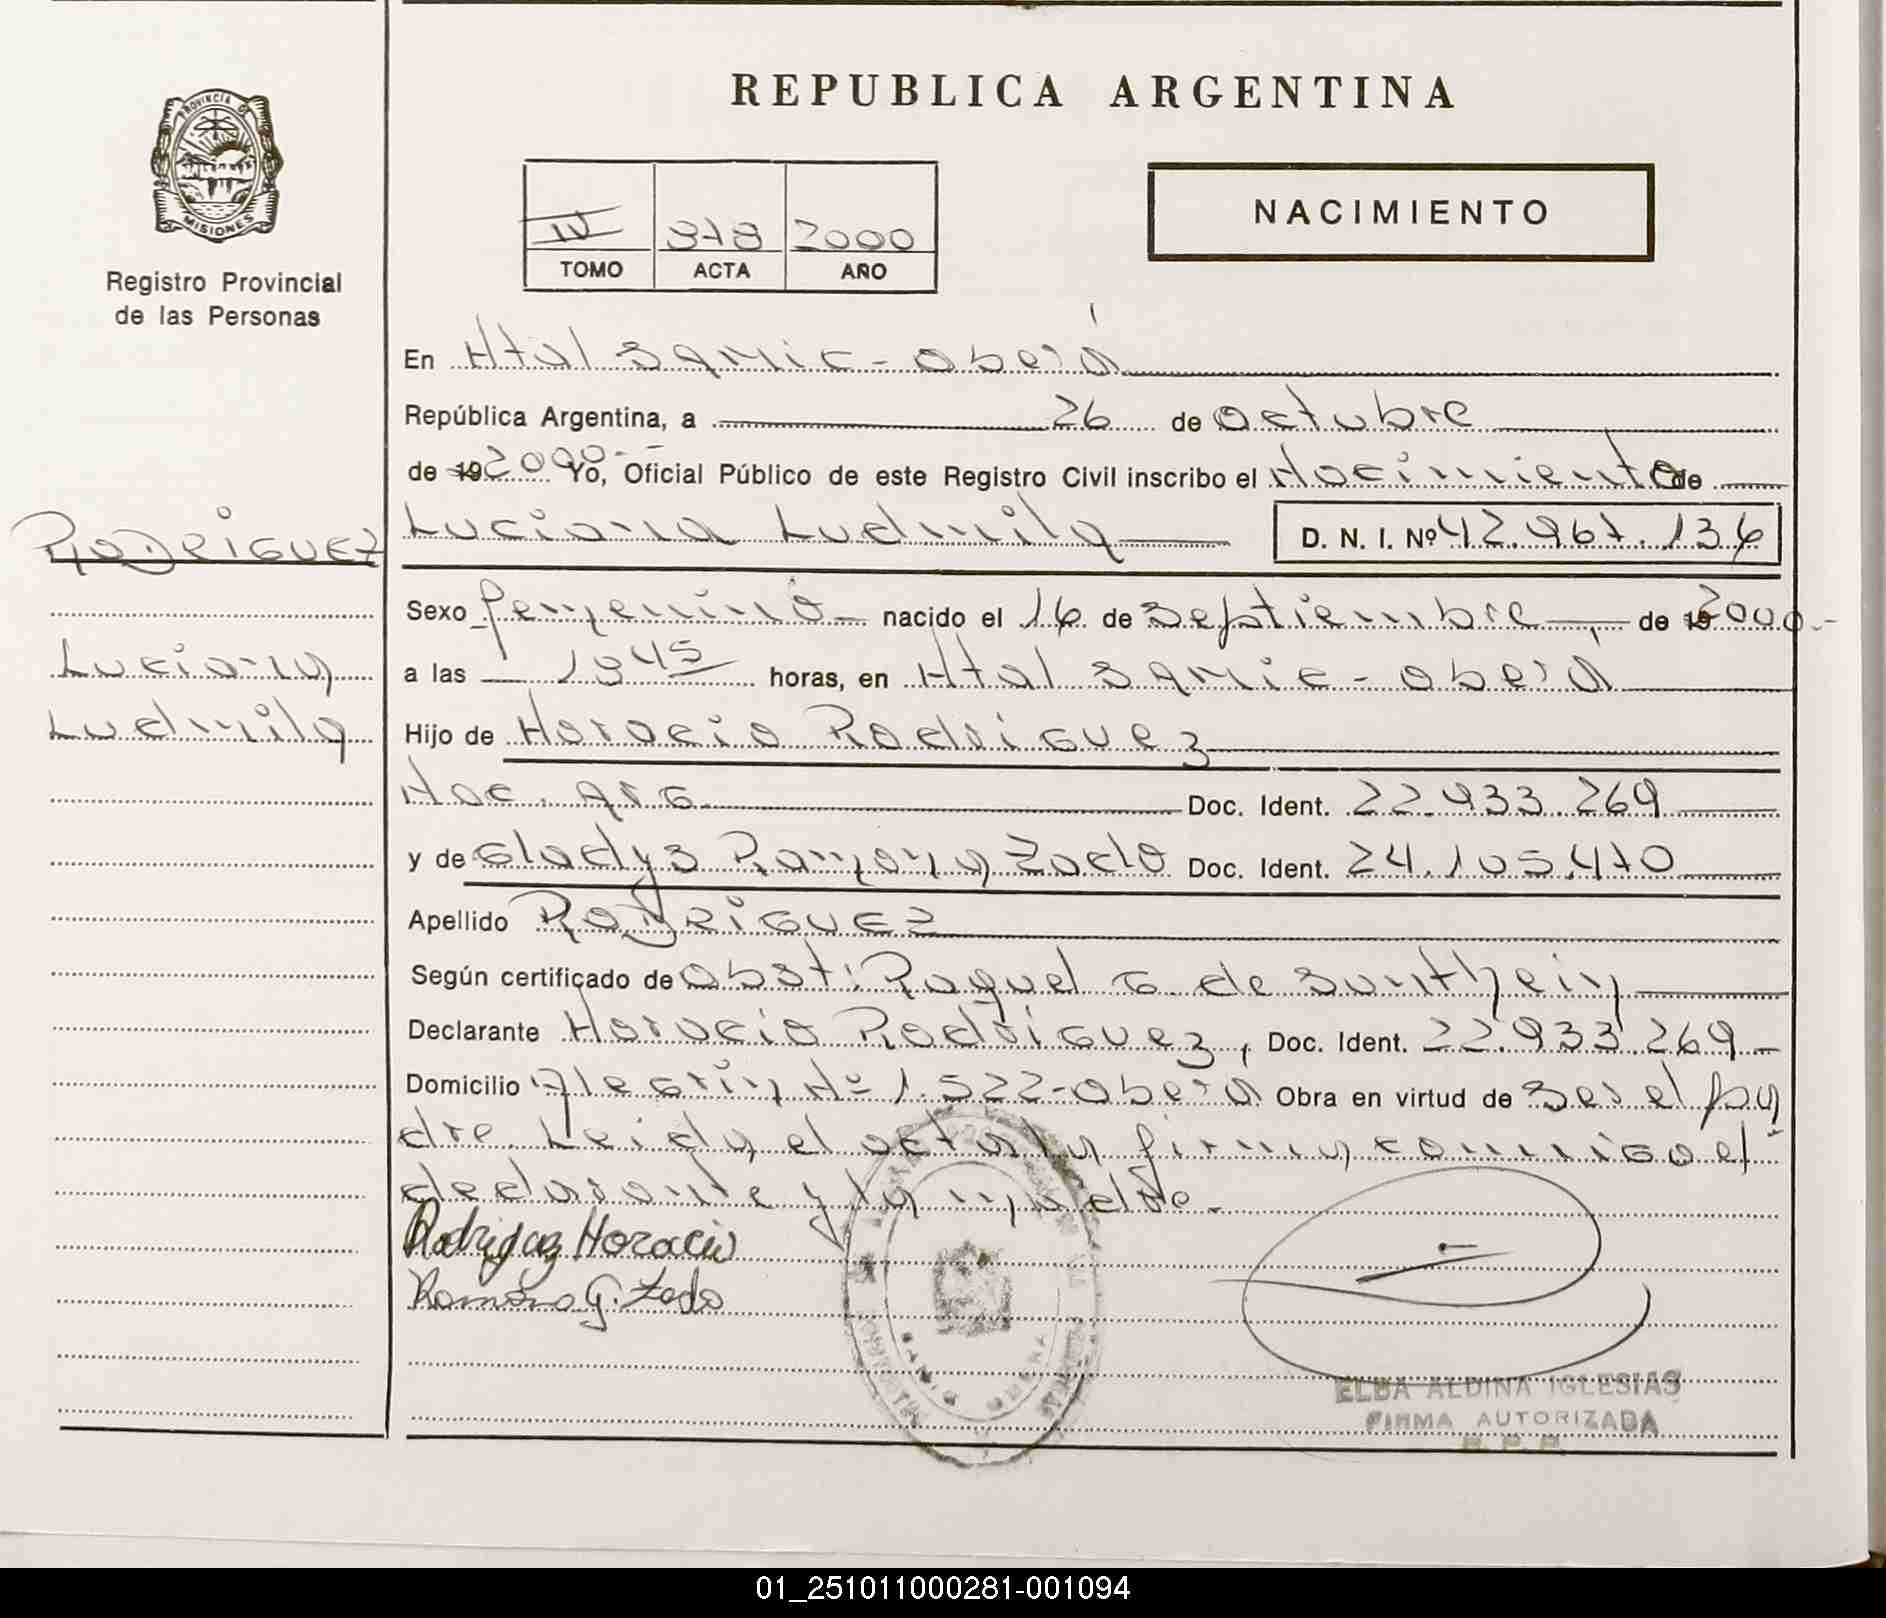 PROVINCIA DE
MISIONES
Registro Provincial
de las Personas
RODRIGUEZ
Luciana
Ludmila
REPUBLICA ARGENTINA
IV 378 2000
TOMO ACTA AÑO
NACIMIENTO
En Htal Samic - Oberá
República Argentina, a 26 de Octubre
de 19 2000.- Yo, Oficial Público de este Registro Civil inscribo el Nacimiento de
Luciana Ludmila D. N. I. Nº 42.967.136
Sexo femenino nacido el 16 de Septiembre de 19 2000.-
a las 1945 horas, en Htal Samic - Oberá
Hijo de Horacio Rodriguez
Nac. arg. Doc. Ident. 22.933.269
y de Gladys Ramona Zado Doc. Ident. 24.105.470
Apellido RODRIGUEZ
Según certificado de Obst: Raquel G. de Sunthein
Declarante Horacio Rodriguez, Doc. Ident. 22.933.269
Domicilio Alegrin Nº 1.522 - Oberá Obra en virtud de Ser el pa
dre. Leida el acta la firma conmigo el
declarante y la madre.
Rodriguez Horacio
Ramona G. Zado
ELBA ALDINA IGLESIAS
FIRMA AUTORIZADA
R. P. P.
01_251011000281-001094